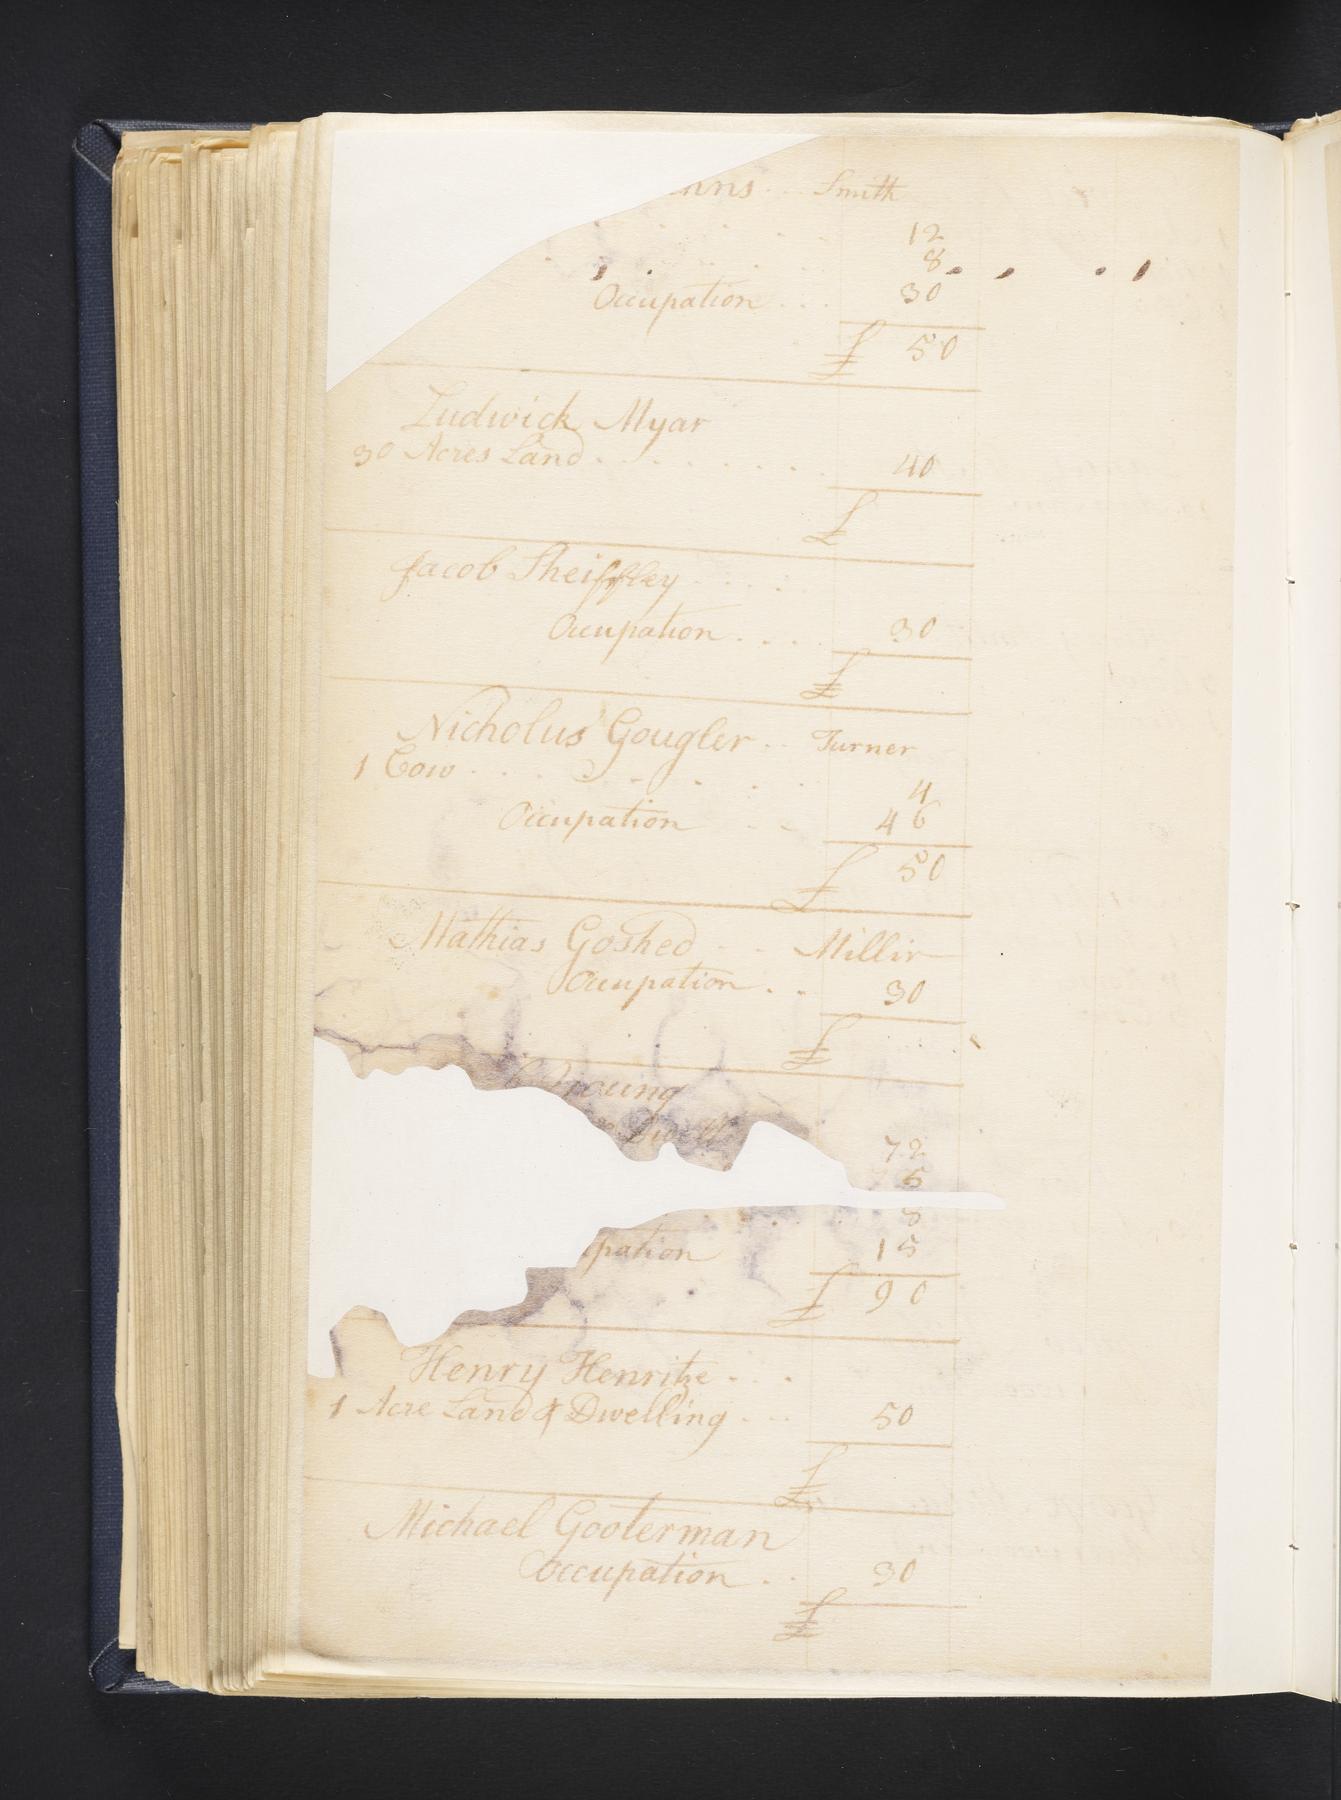 nns... Smith
. . . . 12
. . . . 8
Occupation... 30
£ 50
Ludwick Myar
30 Acres Land......... 40
£
Jacob Sheiffley....
Occupation.... 30
£
Nicholus Gougler.. Turner
1 Cow........ 4
Occupation -- 46
£ 50
Mathias Goshed -- Millir
Occupation.. 30
£ ....
Young
72
5
8
pation 15
£ 90
Henry Henritze...
1 Acre Land & Dwelling... 50
£
Michael Gooterman
Occupation.. 30
£